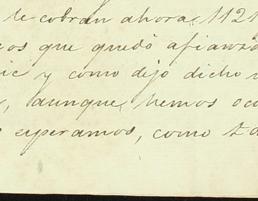 le cobran ahora, 1121
que quedó afianza
y como dejo dicho
, aunque hemos oc
esperamos, como t